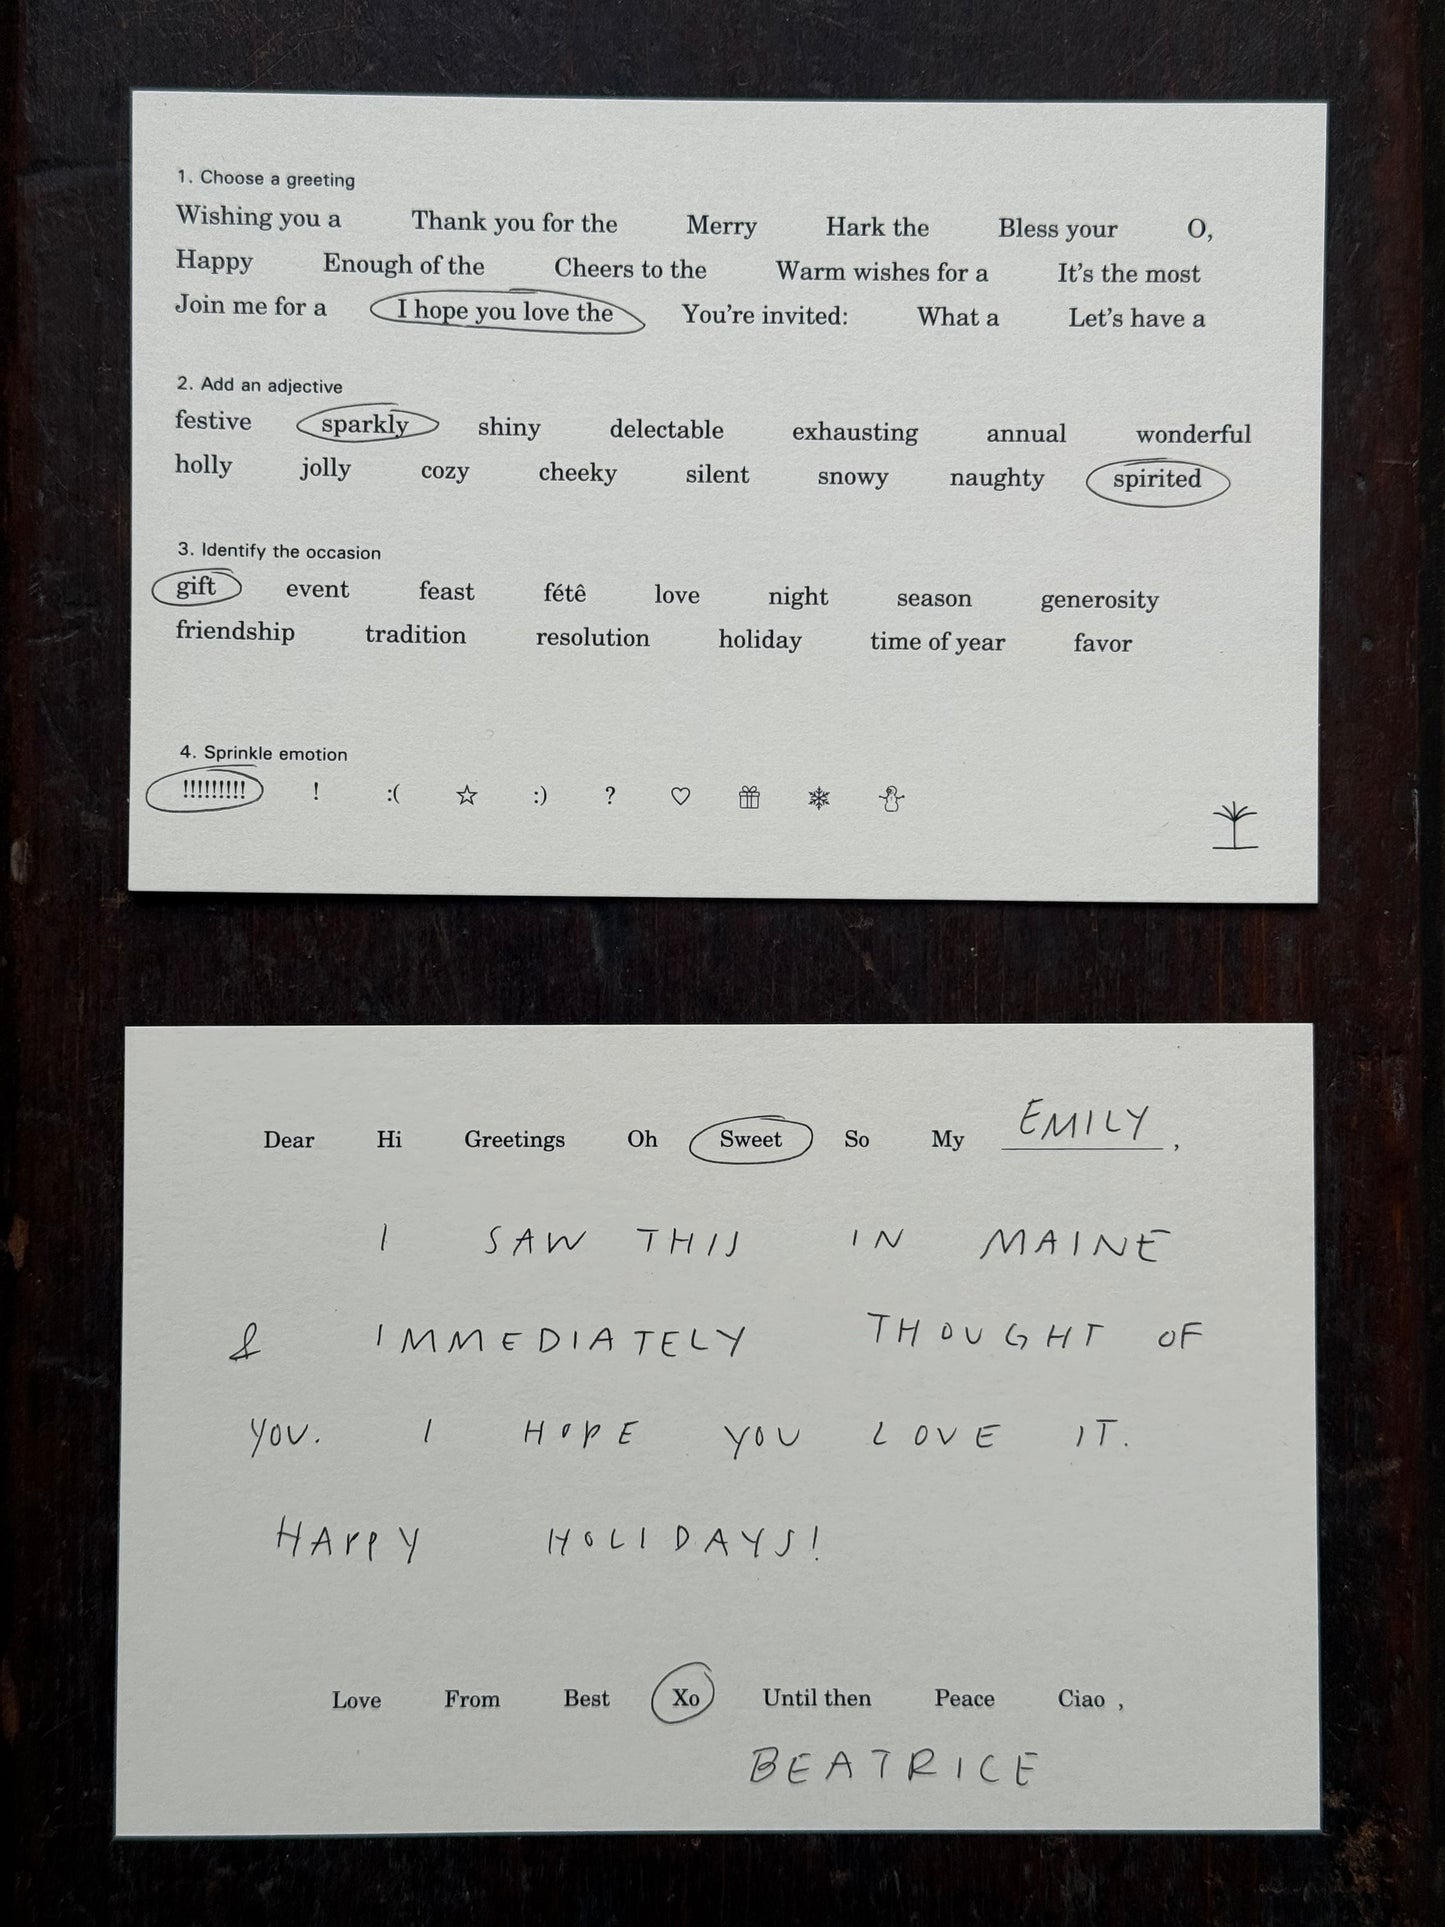 1. Choose a greeting
Wishing you a Thank you for the Merry Hark the Bless your O,
Happy Enough of the Cheers to the Warm wishes for a It's the most
Join me for a I hope you love the You're invited: What a Let's have a
2. Add an adjective
festive sparkly shiny delectable exhausting annual wonderful
holly jolly cozy cheeky silent snowy naughty spirited
3. Identify the occasion
gift event feast fétê love night season generosity
friendship tradition resolution holiday time of year favor
4. Sprinkle emotion
!!!!!!!!! ! :( ☆ :) ? ♡
Dear Hi Greetings Oh Sweet So My EMILY,
I SAW THIS IN MAINE
& IMMEDIATELY THOUGHT OF
YOU. I HOPE YOU LOVE IT.
HAPPY HOLIDAYS!
Love From Best Xo Until then Peace Ciao ,
BEATRICE